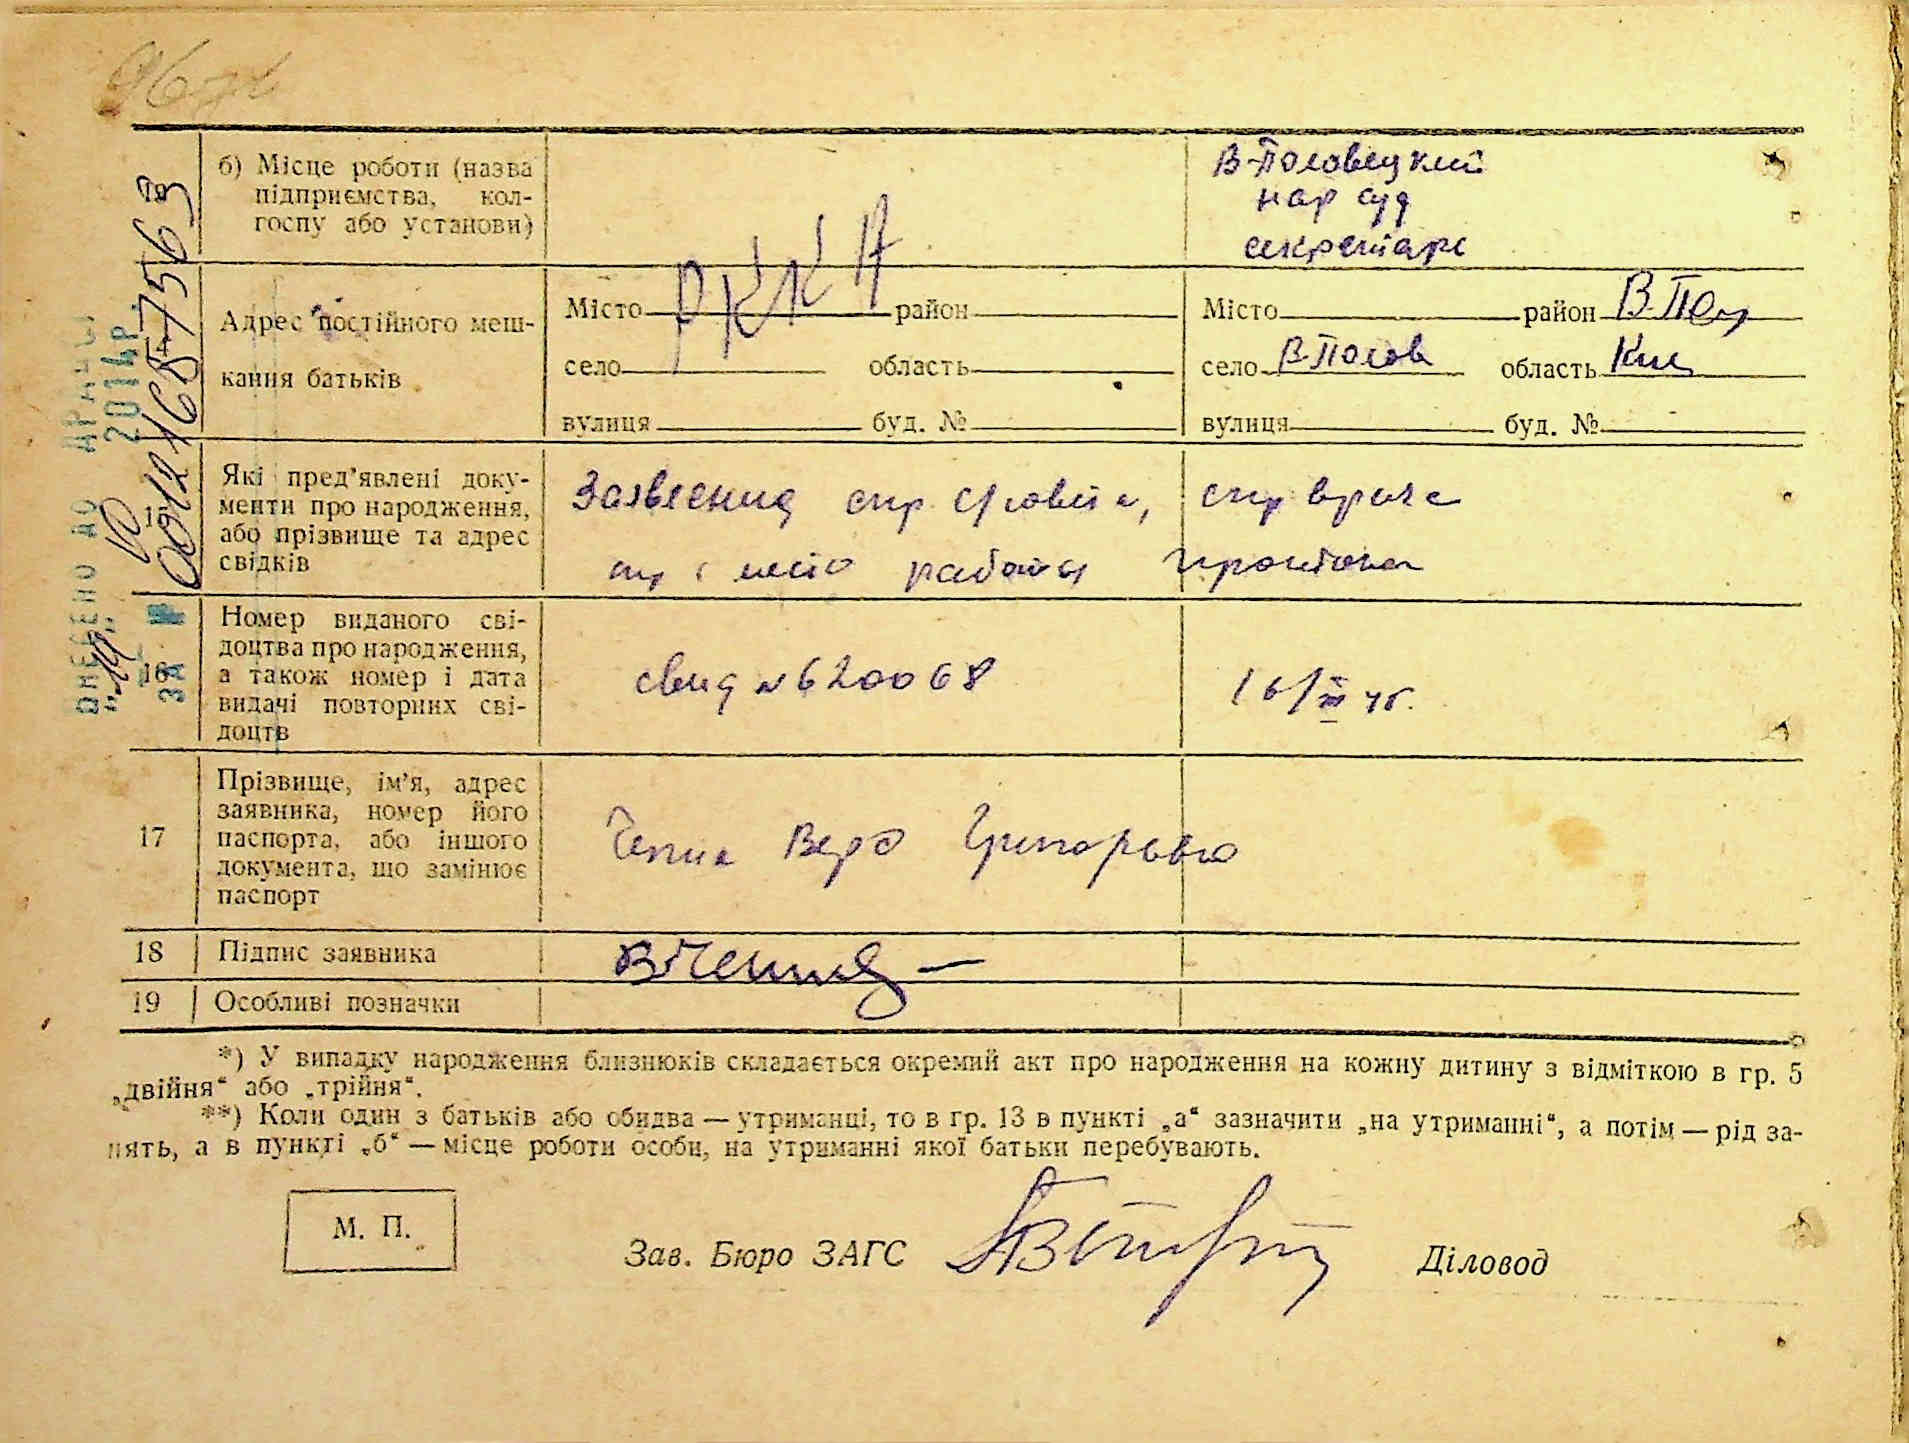 б) Місце роботи (назва
підприємства, кол-
госпу або установи)
В-Половецкий
нар суд
секретарь
РККА
Адрес постійного меш-
кання батьків
Місто район
село область
вулиця буд. №
Місто район В-Пол
село В-Полов область Ки
вулиця буд. №
15
Які пред’явлені доку-
менти про народження,
або прізвище та адрес
свідків
спр
работы
16
Номер виданого сві-
доцтва про народження,
а також номер і дата
видачі повторних сві-
доцтв
свид № 620068
16/III 45.
17
Прізвище, ім’я, адрес
заявника, номер його
паспорта, або іншого
документа, що замінює
паспорт
Вера Григорьевна
18 Підпис заявника
19 Особливі позначки
*) У випадку народження близнюків складається окремий акт про народження на кожну дитину з відміткою в гр. 5
„двійня“ або „трійня“.
**) Коли один з батьків або обидва — утриманці, то в гр. 13 в пункті „а“ зазначити „на утриманні“, а потім — рід за-
нять, а в пункті „б“ — місце роботи особи, на утриманні якої батьки перебувають.
М. П.
Зав. Бюро ЗАГС
Діловод
ВНЕСЕНО ДО
2014р.
ЗА №
00121687563